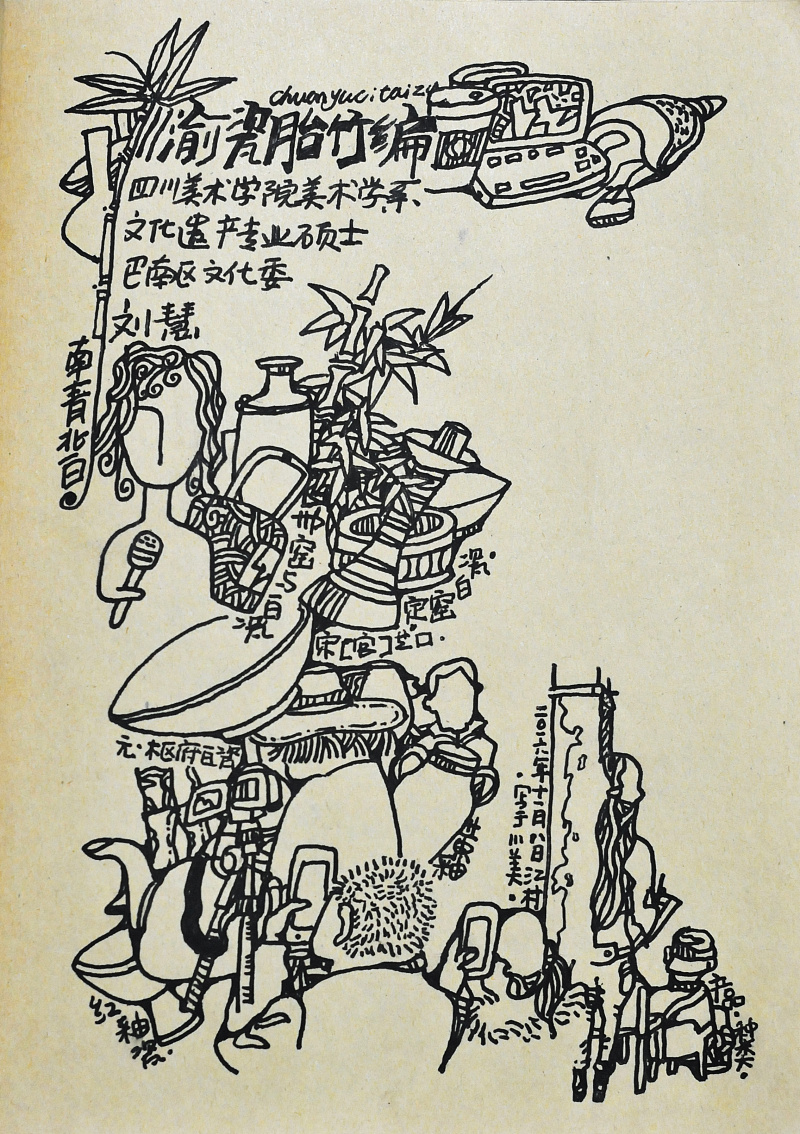 chuanyucitaizu
渝瓷胎竹编
四川美术学院美术学系、
文化遗产专业硕士
巴南区文化委
刘慧
南青北白
邢窑与白瓷
定窑
白瓷
宋[官]芒口.
元·枢府白瓷
釉
红釉瓷.
二〇一六年十一月八日江村
·写于川美·
产品·种类·